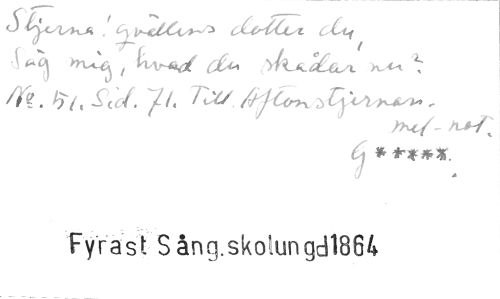 Stjerna! qvällens dotter du,
Säg mig, hvad du skådar nu?
No. 51. Sid. 71. Till Aftonstjernan.
mel-not.
G*****.
Fyrast Sång.skolungd1864